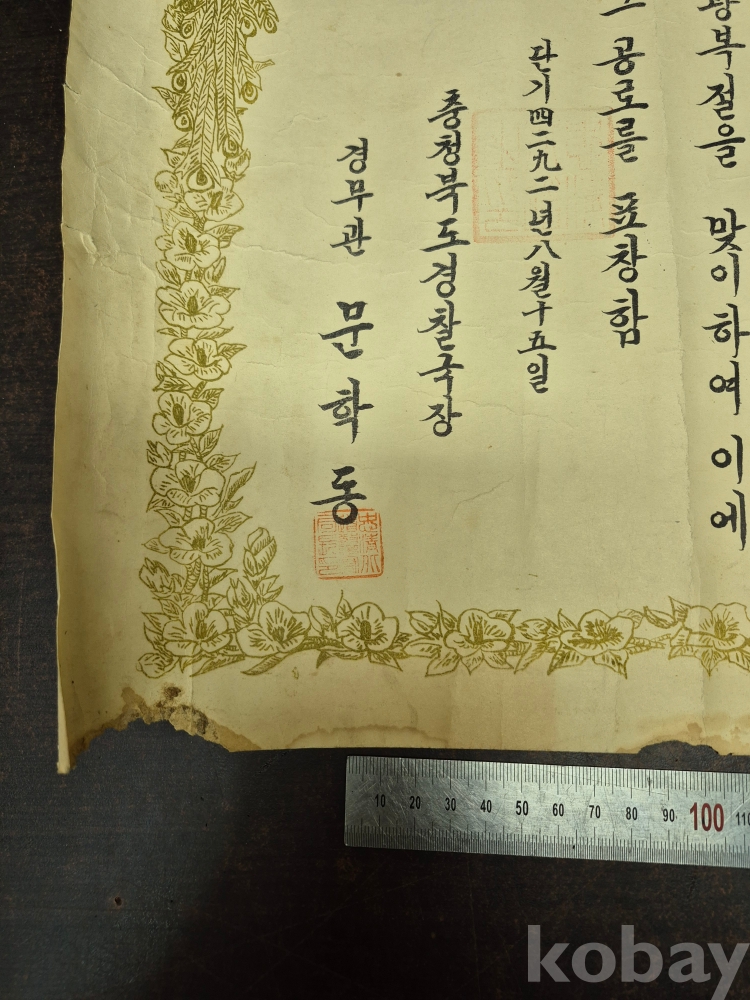 광복절을 맞이하여 이에
그 공로를 표창함
단기四二九二년八월十五일
충청북도경찰국장
경무관 문학동
10 20 30 40 50 60 70 80 90 100 110
kobay